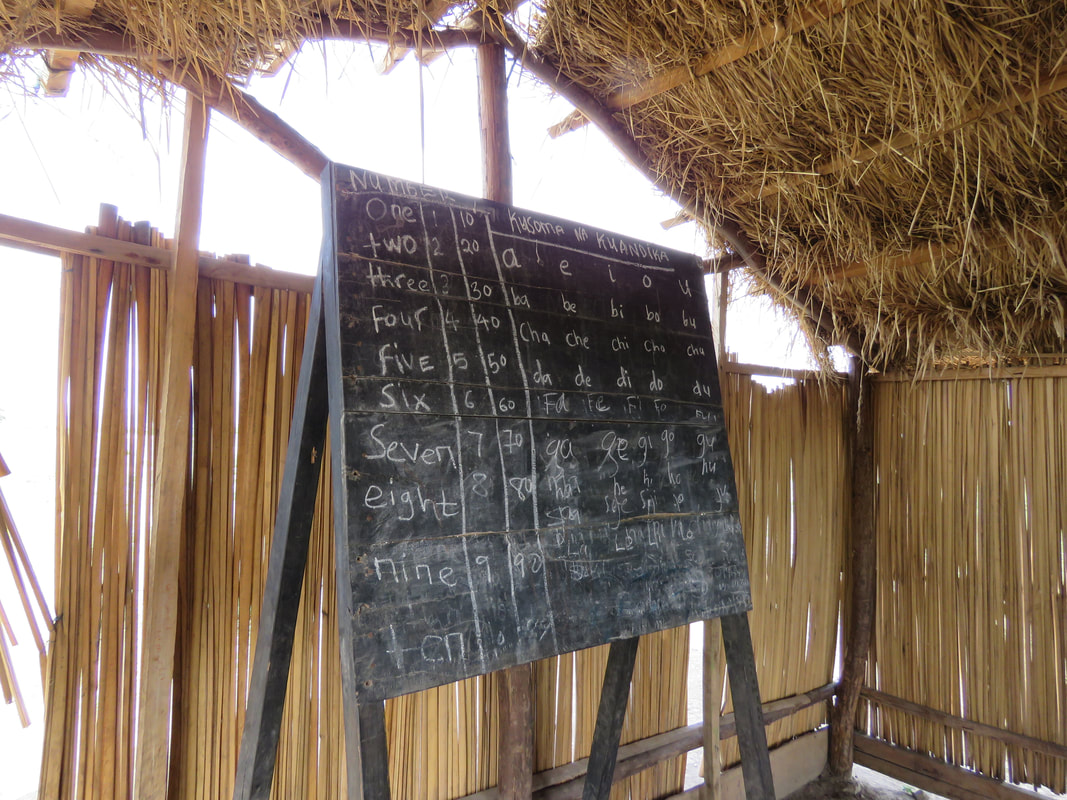 NUMBER
One 1 10
two 2 20
three 3 30
Four 4 40
FiVE 5 50
Six 6 60
Seven 7 70
eight 8 80
nine 9 90
ten
KUSOMA NA KUANDIKA
a e i o u
ba be bi bo bu
cha che chi cho chu
da de di do du
Fa Fe Fi Fo
ga ge gi go gu
ha he hi ho hu